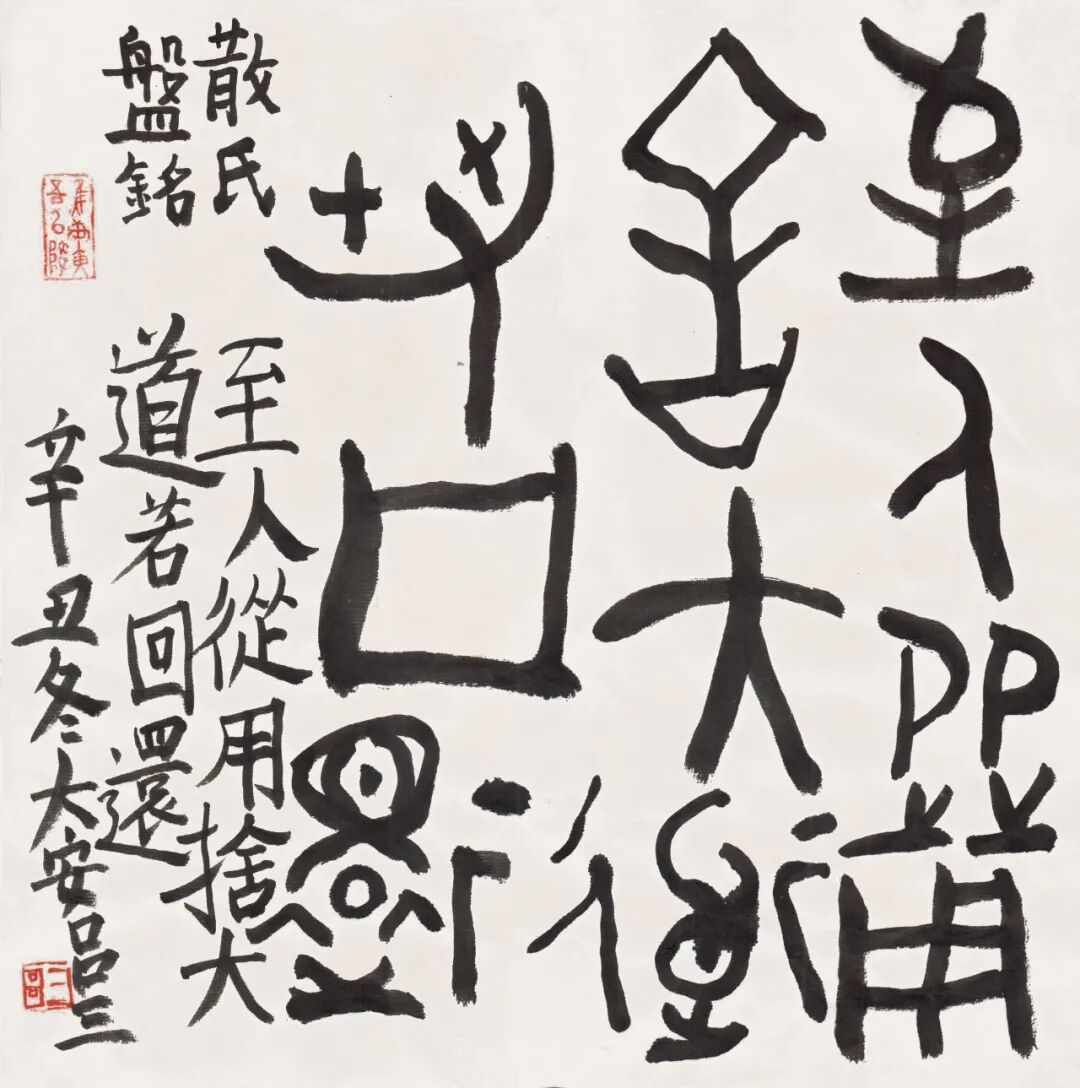 至人從用
舍大道
若回還
散氏
盤銘
至人從用捨大
道若回還
辛丑冬大安吕三